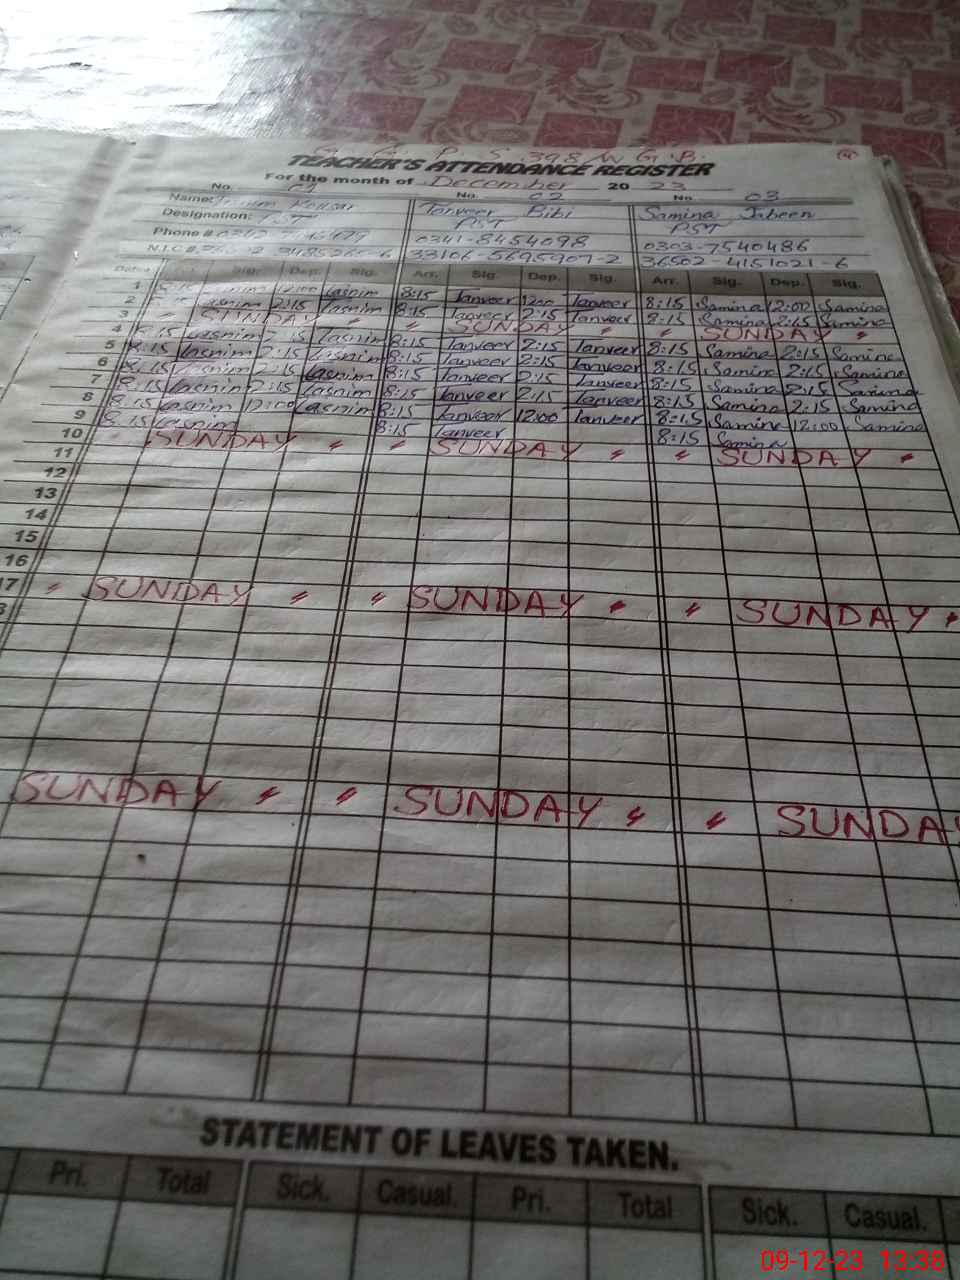 G. G. P. S 398/W G.B.
TEACHER'S ATTENDANCE REGISTER
For the month of December 20 23
No. 01 No. 02 No. 03
Name: Kousar Tanveer Bibi Samina Jabeen
Designation: PST PST PST
Phone # 0341-8454098 0303-7540486
N.I.C # 33106-5695907-2 36502-4151021-6
Dates Sig. Dep. Sig. Arr. Sig. Dep. Sig. Arr. Sig. Dep. Sig.
1 8:15 12:00 Tasnim 8:15 Tanveer 12:00 Tanveer 8:15 Samina 12:00 Samina
2 8:15 Tasnim 2:15 Tasnim 8:15 Tanveer 2:15 Tanveer 8:15 Samina 2:15 Samina
3 〃 SUNDAY 〃 〃 SUNDAY 〃 〃 SUNDAY 〃
4 8:15 Tasnim 2:15 Tasnim 8:15 Tanveer 2:15 Tanveer 8:15 Samina 2:15 Samina
5 8:15 Tasnim 2:15 Tasnim 8:15 Tanveer 2:15 Tanveer 8:15 Samina 2:15 Samina
6 8:15 Tasnim 2:15 Tasnim 8:15 Tanveer 2:15 Tanveer 8:15 Samina 2:15 Samina
7 8:15 Tasnim 2:15 Tasnim 8:15 Tanveer 2:15 Tanveer 8:15 Samina 2:15 Samina
8 8:15 Tasnim 12:00 Tasnim 8:15 Tanveer 12:00 Tanveer 8:15 Samina 12:00 Samina
9 8:15 Tasnim 8:15 Tanveer 8:15 Samina
10 SUNDAY 〃 〃 SUNDAY 〃 〃 SUNDAY 〃
11
12
13
14
15
16
17 〃 SUNDAY 〃 〃 SUNDAY 〃 〃 SUNDAY 〃
SUNDAY 〃 〃 SUNDAY 〃 〃 SUNDA
STATEMENT OF LEAVES TAKEN.
Pri. Total Sick. Casual. Pri. Total Sick. Casual.
09-12-23 13:38